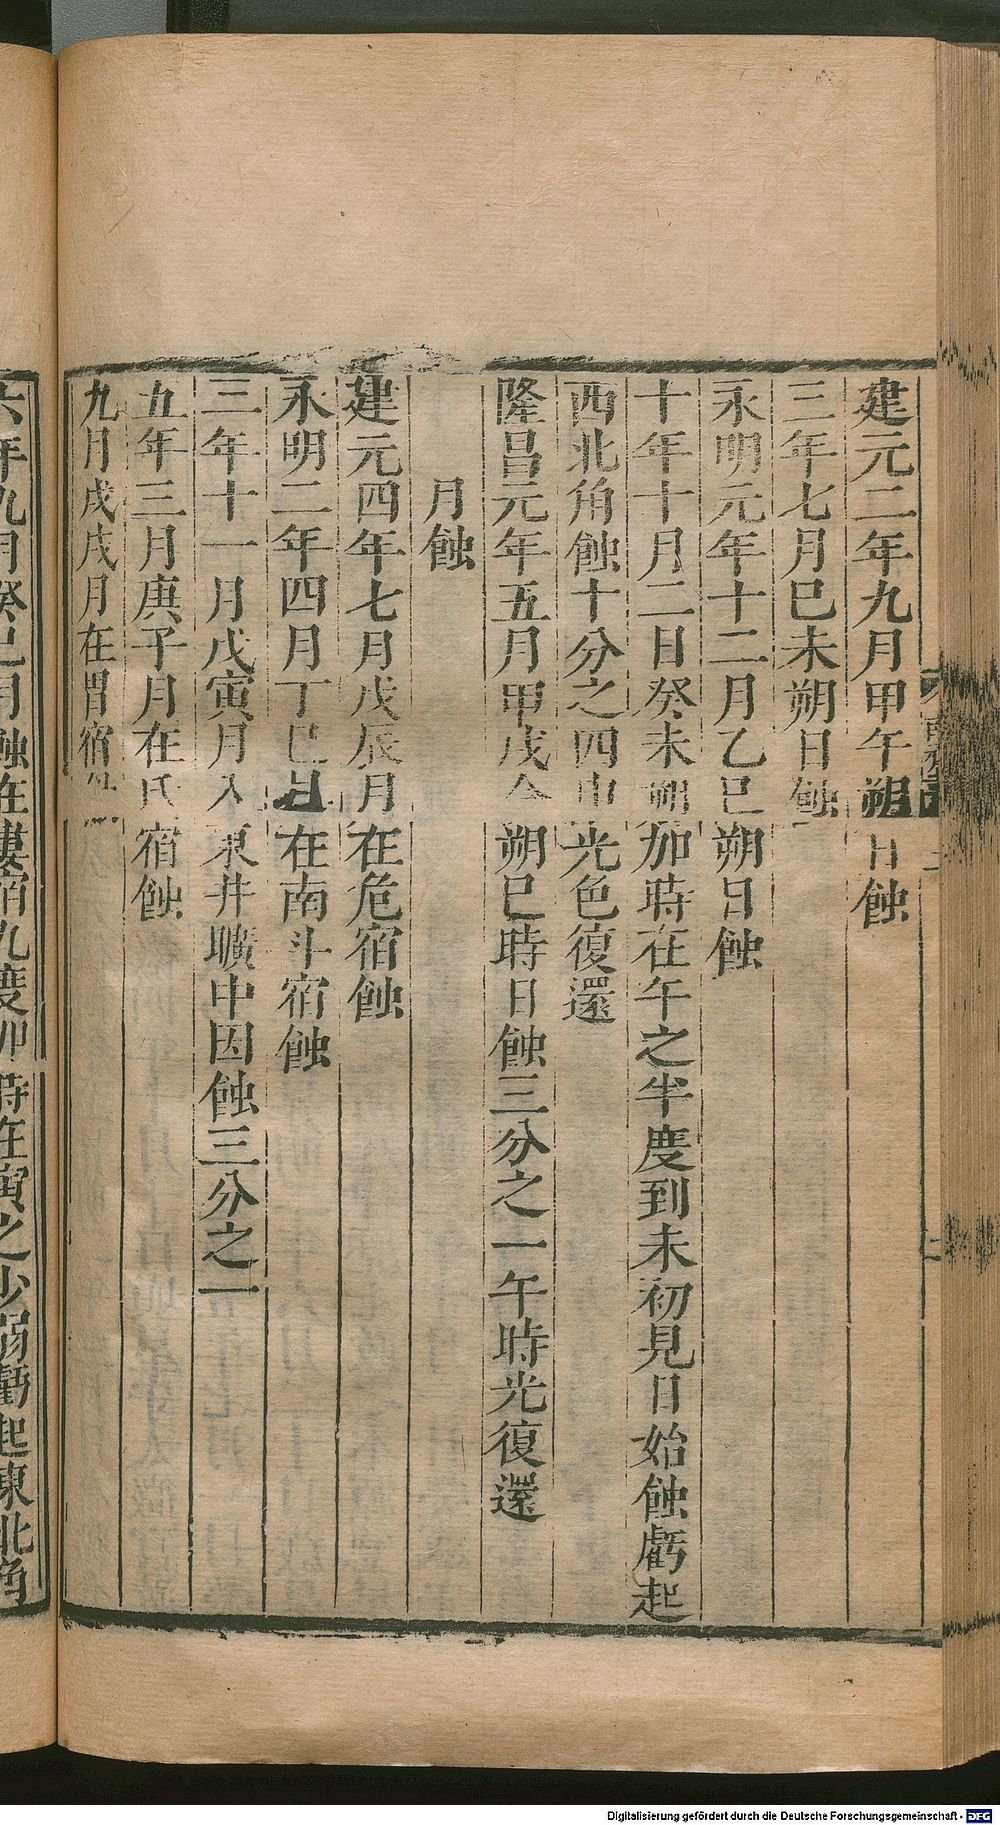 建元二年九月甲午朔日蝕
三年七月巳未朔日蝕
永明元年十二月乙巳朔日蝕
十年十月二日癸未朔加時在午之半度到未初見日始蝕虧起
西北角蝕十分之四申光色復還
隆昌元年五月甲戌合朔巳時日蝕三分之一午時光復還
月蝕
建元四年七月戊辰月在危宿蝕
永明二年四月丁巳月在南斗宿蝕
三年十一月戊寅月入東井曠中因蝕三分之一
五年三月庚子月在氐宿蝕
九月戊戌月在胃宿
六年九月癸巳月蝕在婁宿九度卯時在寅之少弱虧起東北角
Digitalisierung gefördert durch die Deutsche Forschungsgemeinschaft - DFG